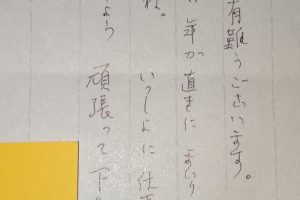 有難うございます。
年が直きにまいり
ね。 いっしょに仕事
よう 頑張って下